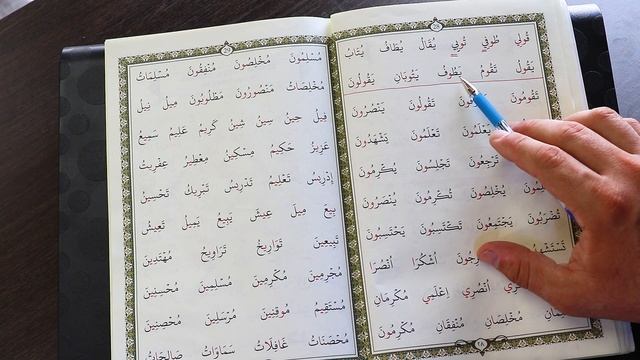 ٢٨
قُولِي طُوفِي تُوبِي يُقَالُ يُطَافُ يُتَابُ
يَقُولُ تَقُومُ يَطُوفُ يَتُوبَانِ يَقُولُونَ
تَقُومُونَ تَقُولُونَ يَنْصُرُونَ
يَعْلَمُونَ تَعْلَمُونَ يَشْهَدُونَ
تَرْجِعُونَ تَجْلِسُونَ يُكْرِمُونَ
يُخْلِصُونَ تُكْرِمُونَ يُنْصَرُونَ
تُضْرَبُونَ يَجْتَمِعُونَ تَكْتَسِبُونَ يَحْتَسِبُونَ
أُشْكُرَا أُنْصُرَا
أُنْصُرِي اِعْلَمِي مُكْرِمَانِ
مُخْلِصَانِ مُنْفِقَانِ مُكْرِمُونَ
٢٩
مُسْلِمُونَ مُخْلِصُونَ مُنْفِقُونَ مُسْلِمَاتُ
مُخْلِصَاتُ مَنْصُورُونَ مَظْلُوبُونَ مِيلَ نِيلَ
فِيلَ حِينَ سِينُ شِينُ كَرِيمُ عَلِيمُ سَمِيعُ
عَزِيزُ حَكِيمُ مِسْكِينُ مِعْطِيرُ عِفْرِيتُ
إِدْرِيسُ تَعْلِيمُ تَدْرِيسُ تَبْرِيكُ تَحْسِينُ
بِيعَ مِيلَ عِيشَ يَبِيعُ يَمِيلُ تَعِيشُ
تَبِيعِينَ تَوَارِيخُ تَرَاوِيحُ مُهْتَدِينَ
مُجْرِمِينَ مُكْرِمِينَ مُسْلِمِينَ مُحْسِنِينَ
مُسْتَقِيمُ مُوقِنِينَ مُرْسَلِينَ مُحْصِنِينَ
مُحْصَنَاتُ غَافِلَاتُ سَمَاوَاتُ صَالِحَاتُ